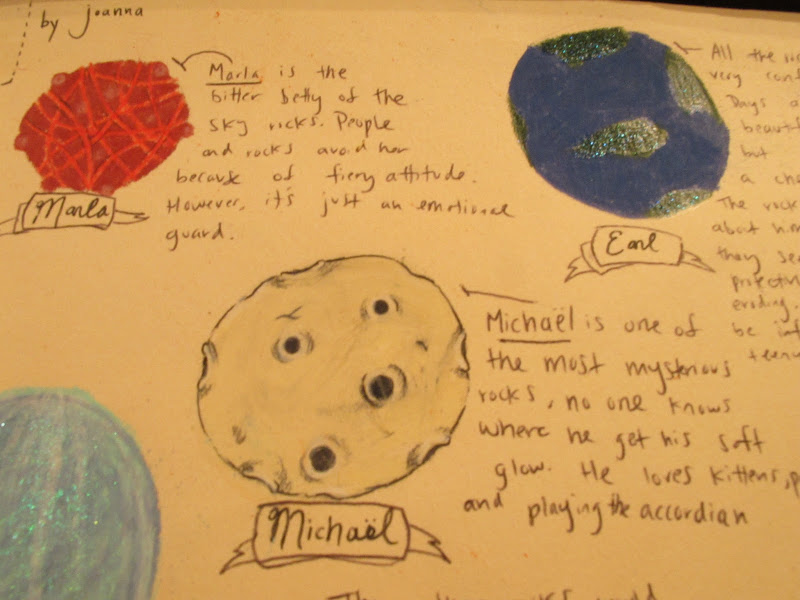 by joanna
Marla is the
bitter betty of the
sky rocks. People
and rocks avoid her
because of fiery attitude.
However, it's just an emotional
guard.
Marla
All the
very
Days
beautif
but
a
The rock
about him
they
protectiv
eroding.
be
Earl
Michaël is one of
the most mysterious
rocks, no one knows
where he get his soft
glow. He loves kittens,
and playing the accordian
Michaël